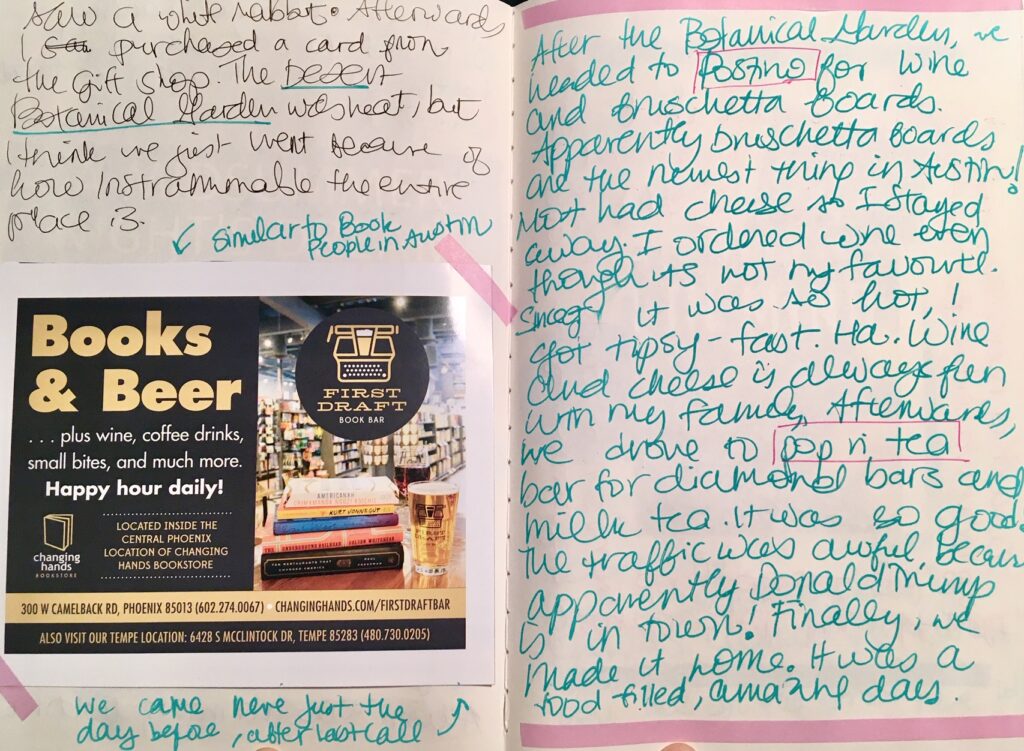 saw a white rabbit. Afterwards,
I purchased a card from
the gift shop. The Desert
Botanical Garden was neat, but
I think we just went because of
how Instrammable the entire
place is.
similar to Book
People in Austin
Books
& Beer
. . . plus wine, coffee drinks,
small bites, and much more.
Happy hour daily!
changing
hands
BOOKSTORE
LOCATED INSIDE THE
CENTRAL PHOENIX
LOCATION OF CHANGING
HANDS BOOKSTORE
FIRST
DRAFT
BOOK BAR
AMERICANAH
KURT VONNEGUT
UNDERGROUND RAILROAD COLSON WHITEHEAD
TEN RESTAURANTS THAT
CHANGED AMERICA PAUL
FREEDMAN
300 W CAMELBACK RD, PHOENIX 85013 (602.274.0067) • CHANGINGHANDS.COM/FIRSTDRAFTBAR
ALSO VISIT OUR TEMPE LOCATION: 6428 S MCCLINTOCK DR, TEMPE 85283 (480.730.0205)
we came here just the
day before, after last call
After the Botanical Garden, we
headed to Postino for wine
and bruschetta boards.
Apparently bruschetta boards
are the newest thing in Austin!
Most had cheese so I stayed
away. I ordered wine even
though its not my favourite.
it was so hot, I
got tipsy - fast. Ha. Wine
and cheese is always fun
with my family. Afterwards,
we drove to pop n' tea
bar for diamond bars and
milk tea. It was so good.
The traffic was awful becaus
apparently Donald Trump
is in town! Finally, we
made it home. It was a
food filled, amazing day.